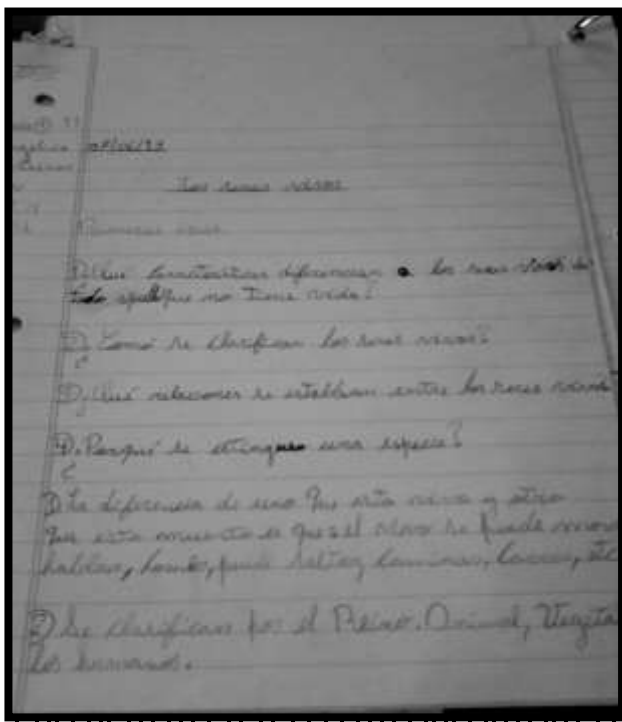 Los seres vivos
Primeras ideas
① ¿Qué características diferencian a los seres vivos de
todo aquello que no tiene vida?
② ¿Como se clasifican los seres vivos?
③ ¿Qué relaciones se establecen entre los seres vivos
④ ¿Porqué se extingue una especie?
① La diferencia de uno que esta vivo y otro
que esta muerto es que el vivo se puede mover
hablar, puede saltar, caminar, correr, etc
② Se clasifican por el Reino. Animal, Vegeta
los humanos.